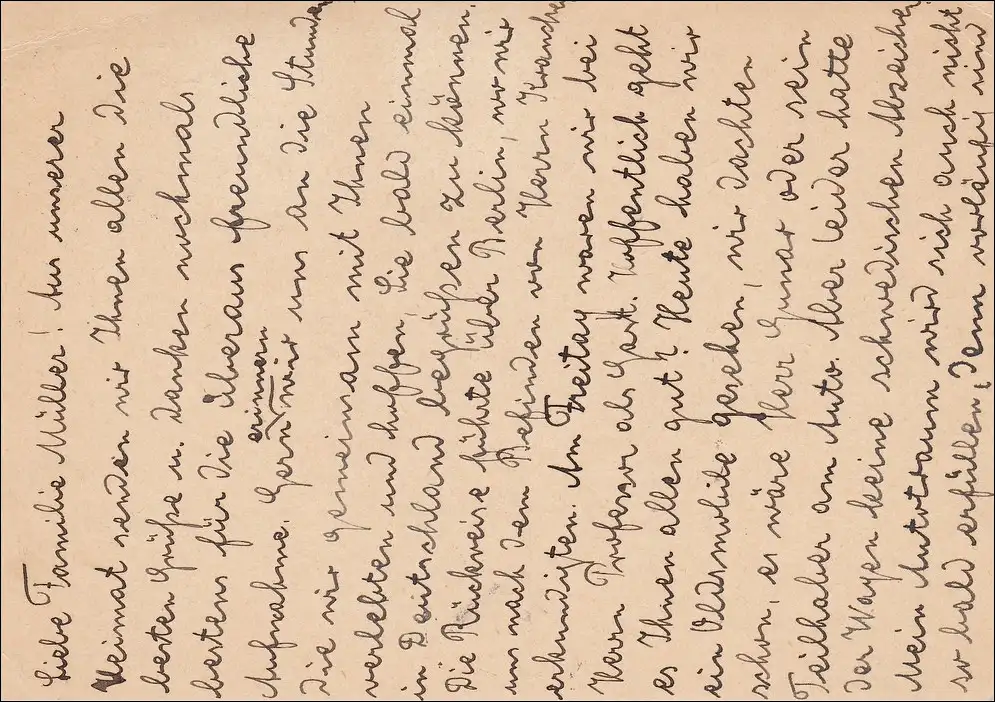 Liebe Familie Müller! Aus unserer
Heimat senden wir Ihnen allen die
besten Grüße u. danken nochmals
bestens für die überaus freundliche
Aufnahme. Gern erinnern wir uns an die Stunden
die wir gemeinsam mit Ihnen
verlebten und hoffen, Sie bald einmal
in Deutschland begrüßen zu können.
Die Rückreise führte über Berlin, wo wir
uns nach dem Befinden von Herrn
erkundigten. Am Freitag waren wir bei
Herrn Professor als Gast. Hoffentlich geht
es Ihnen allen gut? Heute haben wir
ein Oldsmobile gesehen, wir dachten
schon, es wäre Herr Gunar oder sein
Teilhaber am Auto. Aber leider hatte
der Wagen keine schwedischen Abzeichen.
Mein Autotraum wird sich auch nicht
so bald erfüllen, denn vorläufig sind